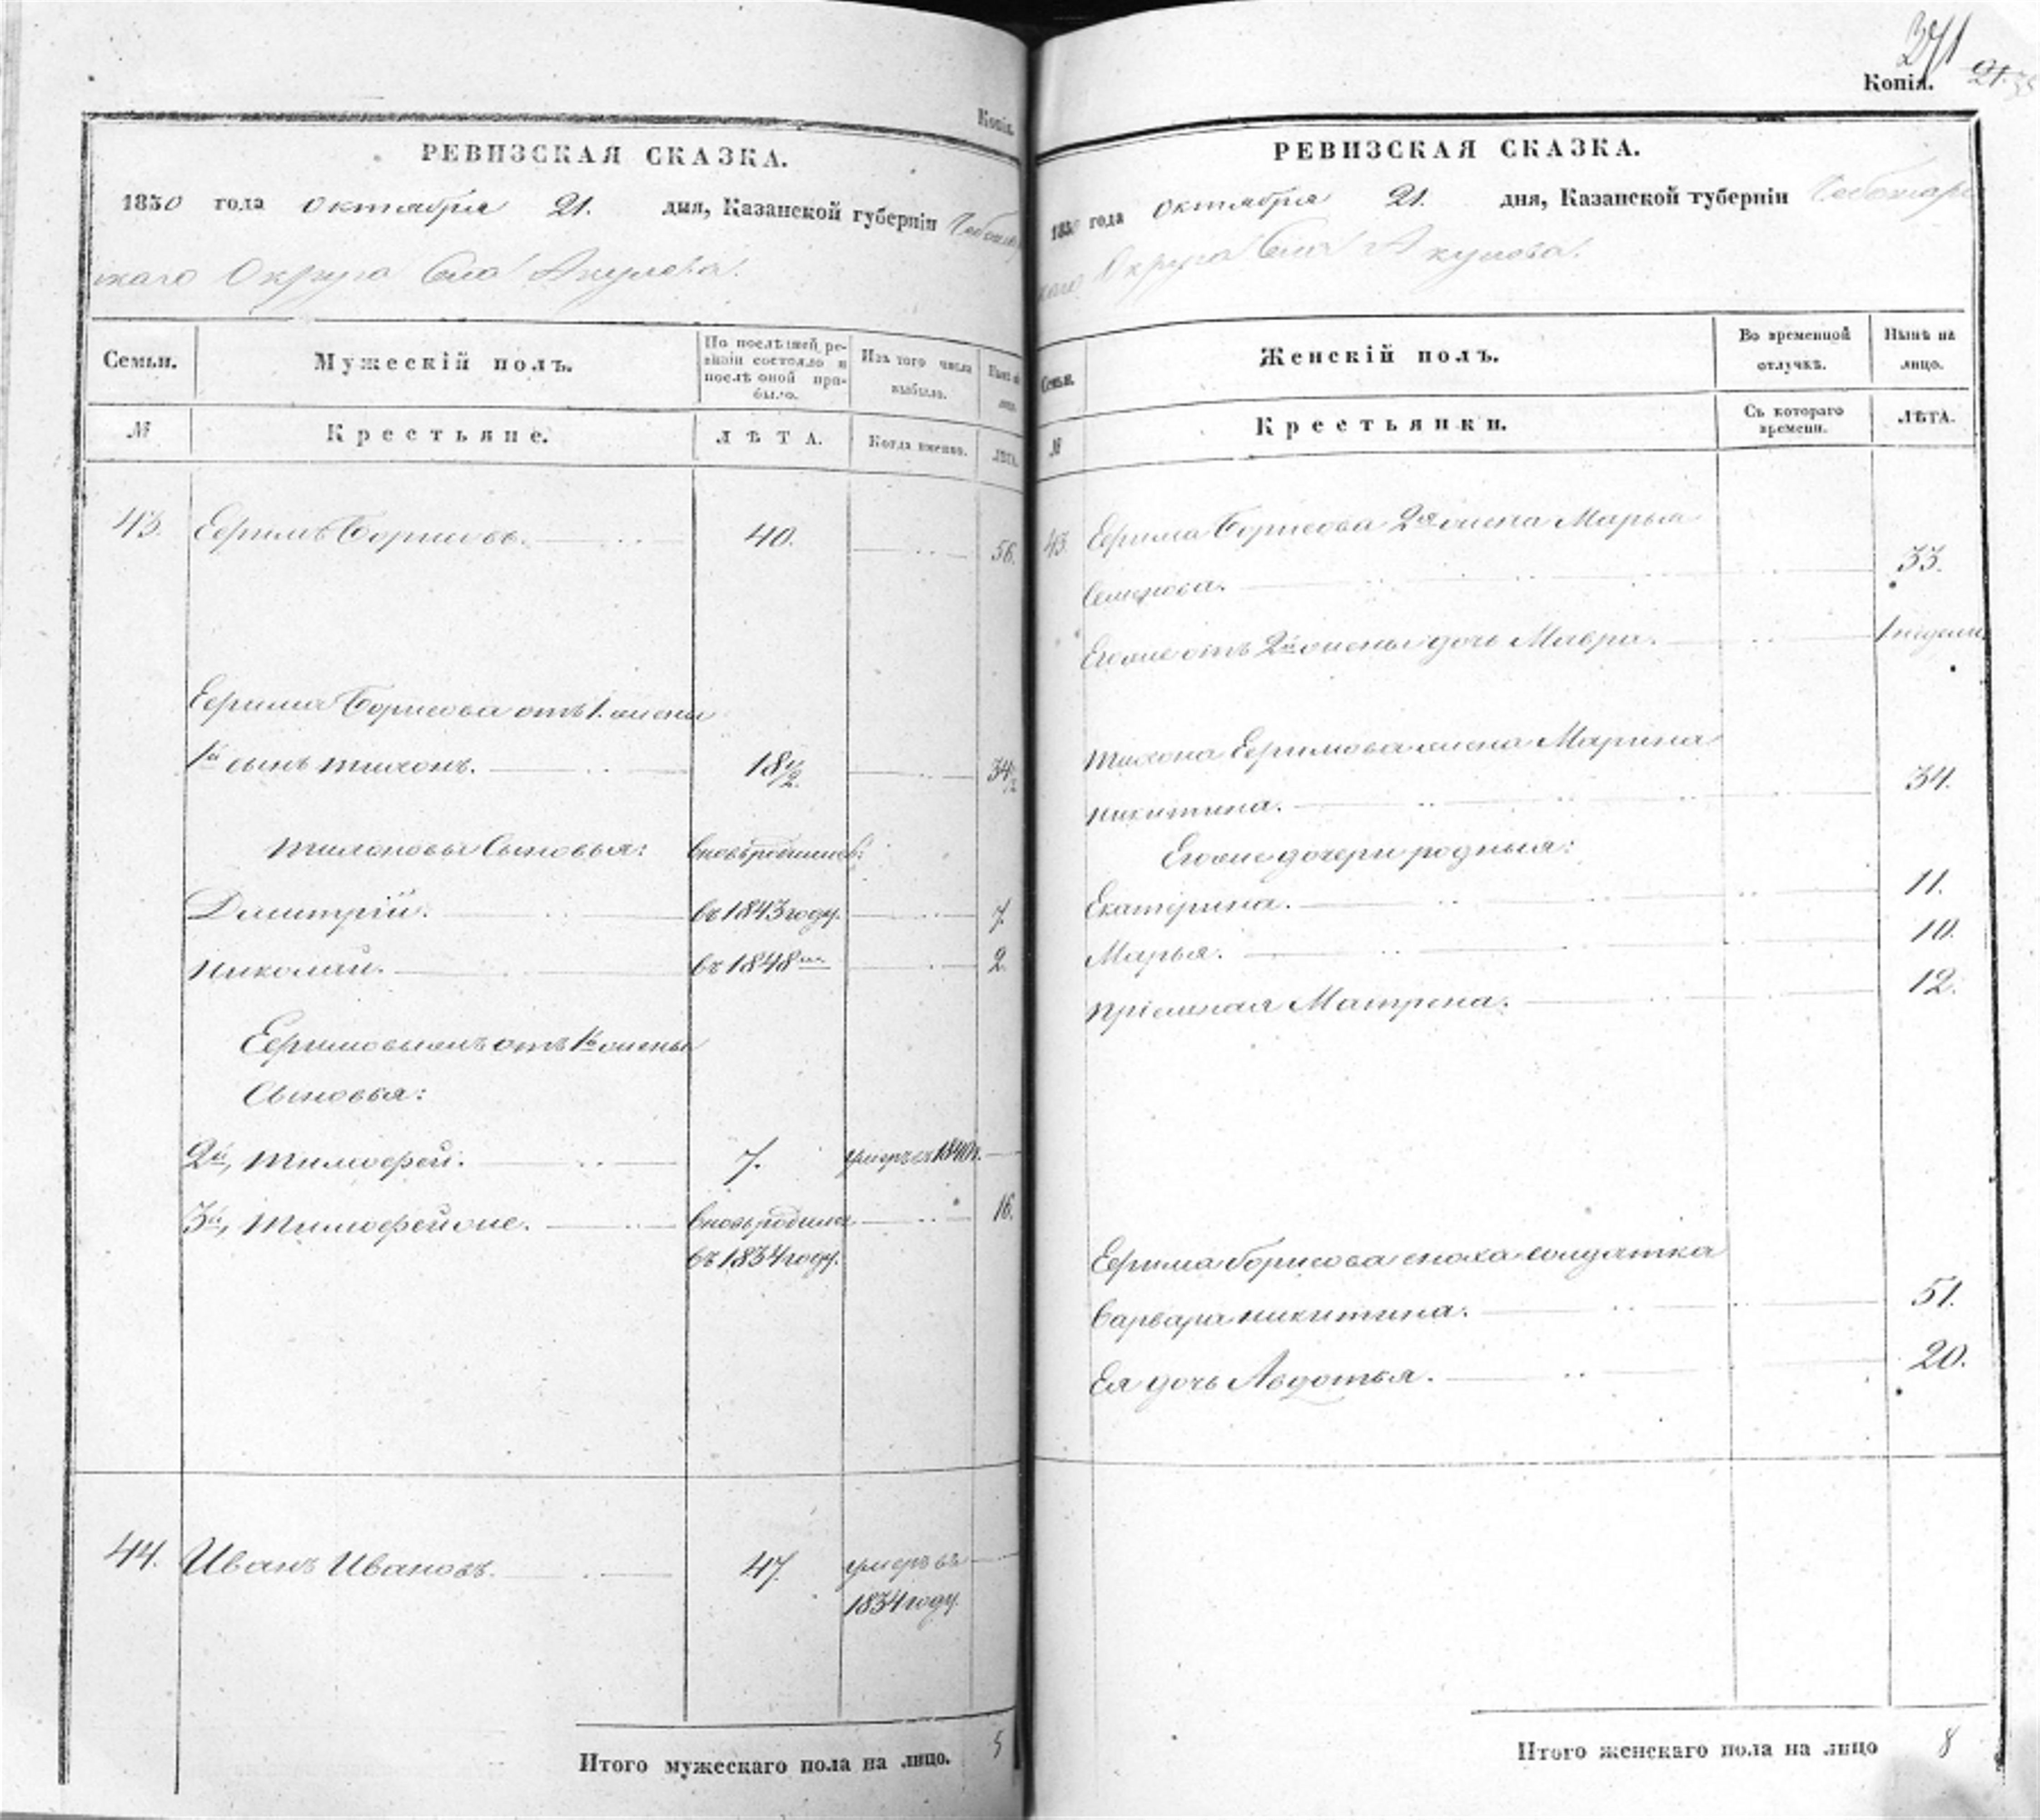 Копія.
РЕВИЗСКАЯ СКАЗКА.
1850 года Октября 21. дня, Казанской губерніи Чебоксар
скаго Округа Села Акулева.
Семьи.
Мужескій полъ.
По послѣдней ре-
визіи состояло и
послѣ оной при-
было.
Изъ того числа
выбыло.
Нынѣ на
лицо.
№
Крестьяне.
ЛѢТА.
Когда именно.
ЛѢТА.
43. Ефримъ Борисовъ. 40. 56.
Ефрима Борисова отъ 1. жены
1й сынъ Тихонъ. 18 1/2. 34 1/2
Тихоновы Сыновья: вновь рожденые:
Димитрій. въ 1843 году. 7.
Николай. въ 1848м 2.
Ефримовыжъ отъ 1й жены
Сыновья:
2й, Тимофей. 7. умеръ въ 1840 г.
3й, Тимофей же. вновь рожденъ 16.
въ 1834 году.
44. Иванъ Ивановъ. 47. умеръ въ
1834 году.
Итого мужескаго пола на лицо. 5
371
Копія. 21.
РЕВИЗСКАЯ СКАЗКА.
1850 года Октября 21. дня, Казанской губерніи Чебоксар
скаго Округа Села Акулева.
Семьи.
Женскій полъ.
Во временной
отлучкѣ.
Нынѣ на
лицо.
№
Крестьянки.
Съ котораго
времени.
ЛѢТА.
43. Ефрима Борисова 2я жена Марья
Семенова. 33.
Егоже отъ 2й жены дочь Мавра. 1 недели
Тихона Ефримова жена Марина
Никитина. 34.
Егоже дочери родныя:
Екатерина. 11.
Марья. 10.
Пріемная Матрена. 12.
Ефрима Борисова сноха солдатка
Варвара Никитина. 51.
Ея дочь Авдотья. 20.
Итого женскаго пола на лицо 8